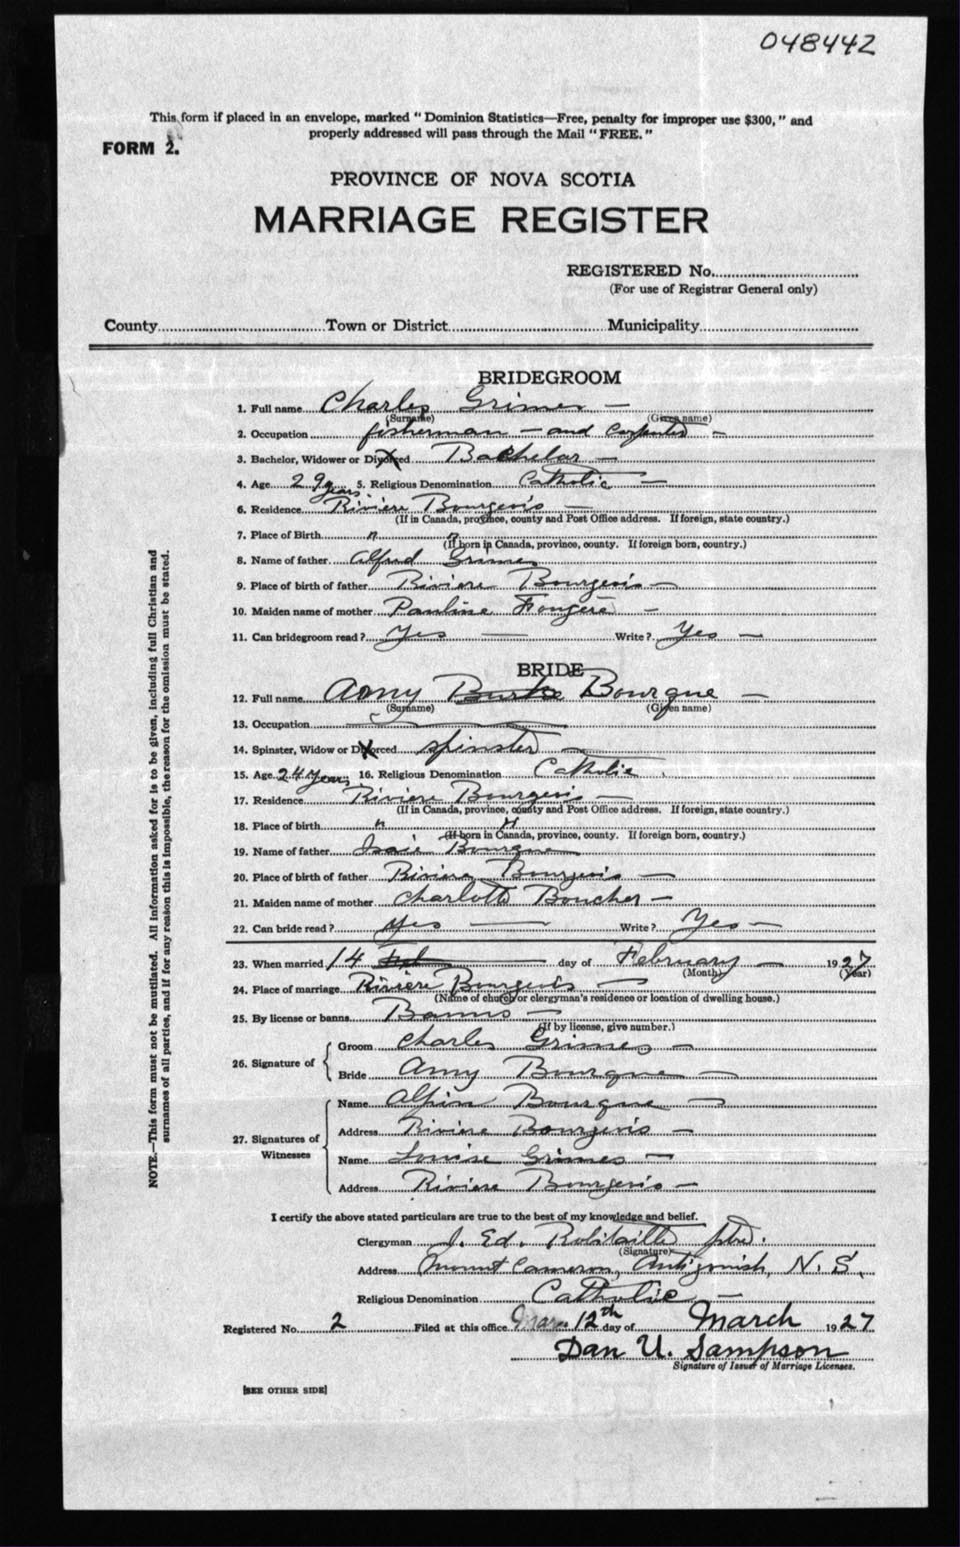 048442
This form if placed in an envelope, marked "Dominion Statistics—Free, penalty for improper use $300," and
properly addressed will pass through the Mail "FREE."
FORM 2.
PROVINCE OF NOVA SCOTIA
MARRIAGE REGISTER
REGISTERED No.
(For use of Registrar General only)
County Town or District Municipality
BRIDEGROOM
1. Full name Charles Grimes —
(Surname) (Given name)
2. Occupation fisherman — and Carpenter —
3. Bachelor, Widower or Divorced Bachelor —
4. Age 29 years. 5. Religious Denomination Catholic —
6. Residence Rivière Bourgeois —
(If in Canada, province, county and Post Office address. If foreign, state country.)
7. Place of Birth " "
(If born in Canada, province, county. If foreign born, country.)
8. Name of father Alfred Grimes
9. Place of birth of father Rivière Bourgeois —
10. Maiden name of mother Pauline Fougère —
11. Can bridegroom read? Yes — Write? Yes —
BRIDE
12. Full name Amy Burke Bourque —
(Surname) (Given name)
13. Occupation
14. Spinster, Widow or Divorced spinster —
15. Age 24 years 16. Religious Denomination Catholic
17. Residence Rivière Bourgeois —
(If in Canada, province, county and Post Office address. If foreign, state country.)
18. Place of birth " "
(If born in Canada, province, county. If foreign born, country.)
19. Name of father Isaie Bourque
20. Place of birth of father Rivière Bourgeois —
21. Maiden name of mother Charlotte Boucher —
22. Can bride read? Yes — Write? Yes —
23. When married 14 day of February — 1927
(Month) (Year)
24. Place of marriage Rivière Bourgeois —
(Name of church or clergyman's residence or location of dwelling house.)
25. By license or banns Banns —
(If by license, give number.)
26. Signature of
Groom Charles Grimes —
Bride Amy Bourque —
27. Signatures of Witnesses
Name Alpin Bourque —
Address Rivière Bourgeois —
Name Louise Grimes —
Address Rivière Bourgeois —
I certify the above stated particulars are true to the best of my knowledge and belief.
Clergyman J. Ed. Robitaille ptre.
(Signature)
Address Mount Cameron, Antigonish, N. S.
Religious Denomination Catholic —
Registered No. 2 Filed at this office 12th day of March 1927
Dan U. Sampson
Signature of Issuer of Marriage Licenses.
[SEE OTHER SIDE]
NOTE.—This form must not be mutilated. All information asked for is to be given, including full Christian and
surnames of all parties, and if for any reason this is impossible, the reason for the omission must be stated.